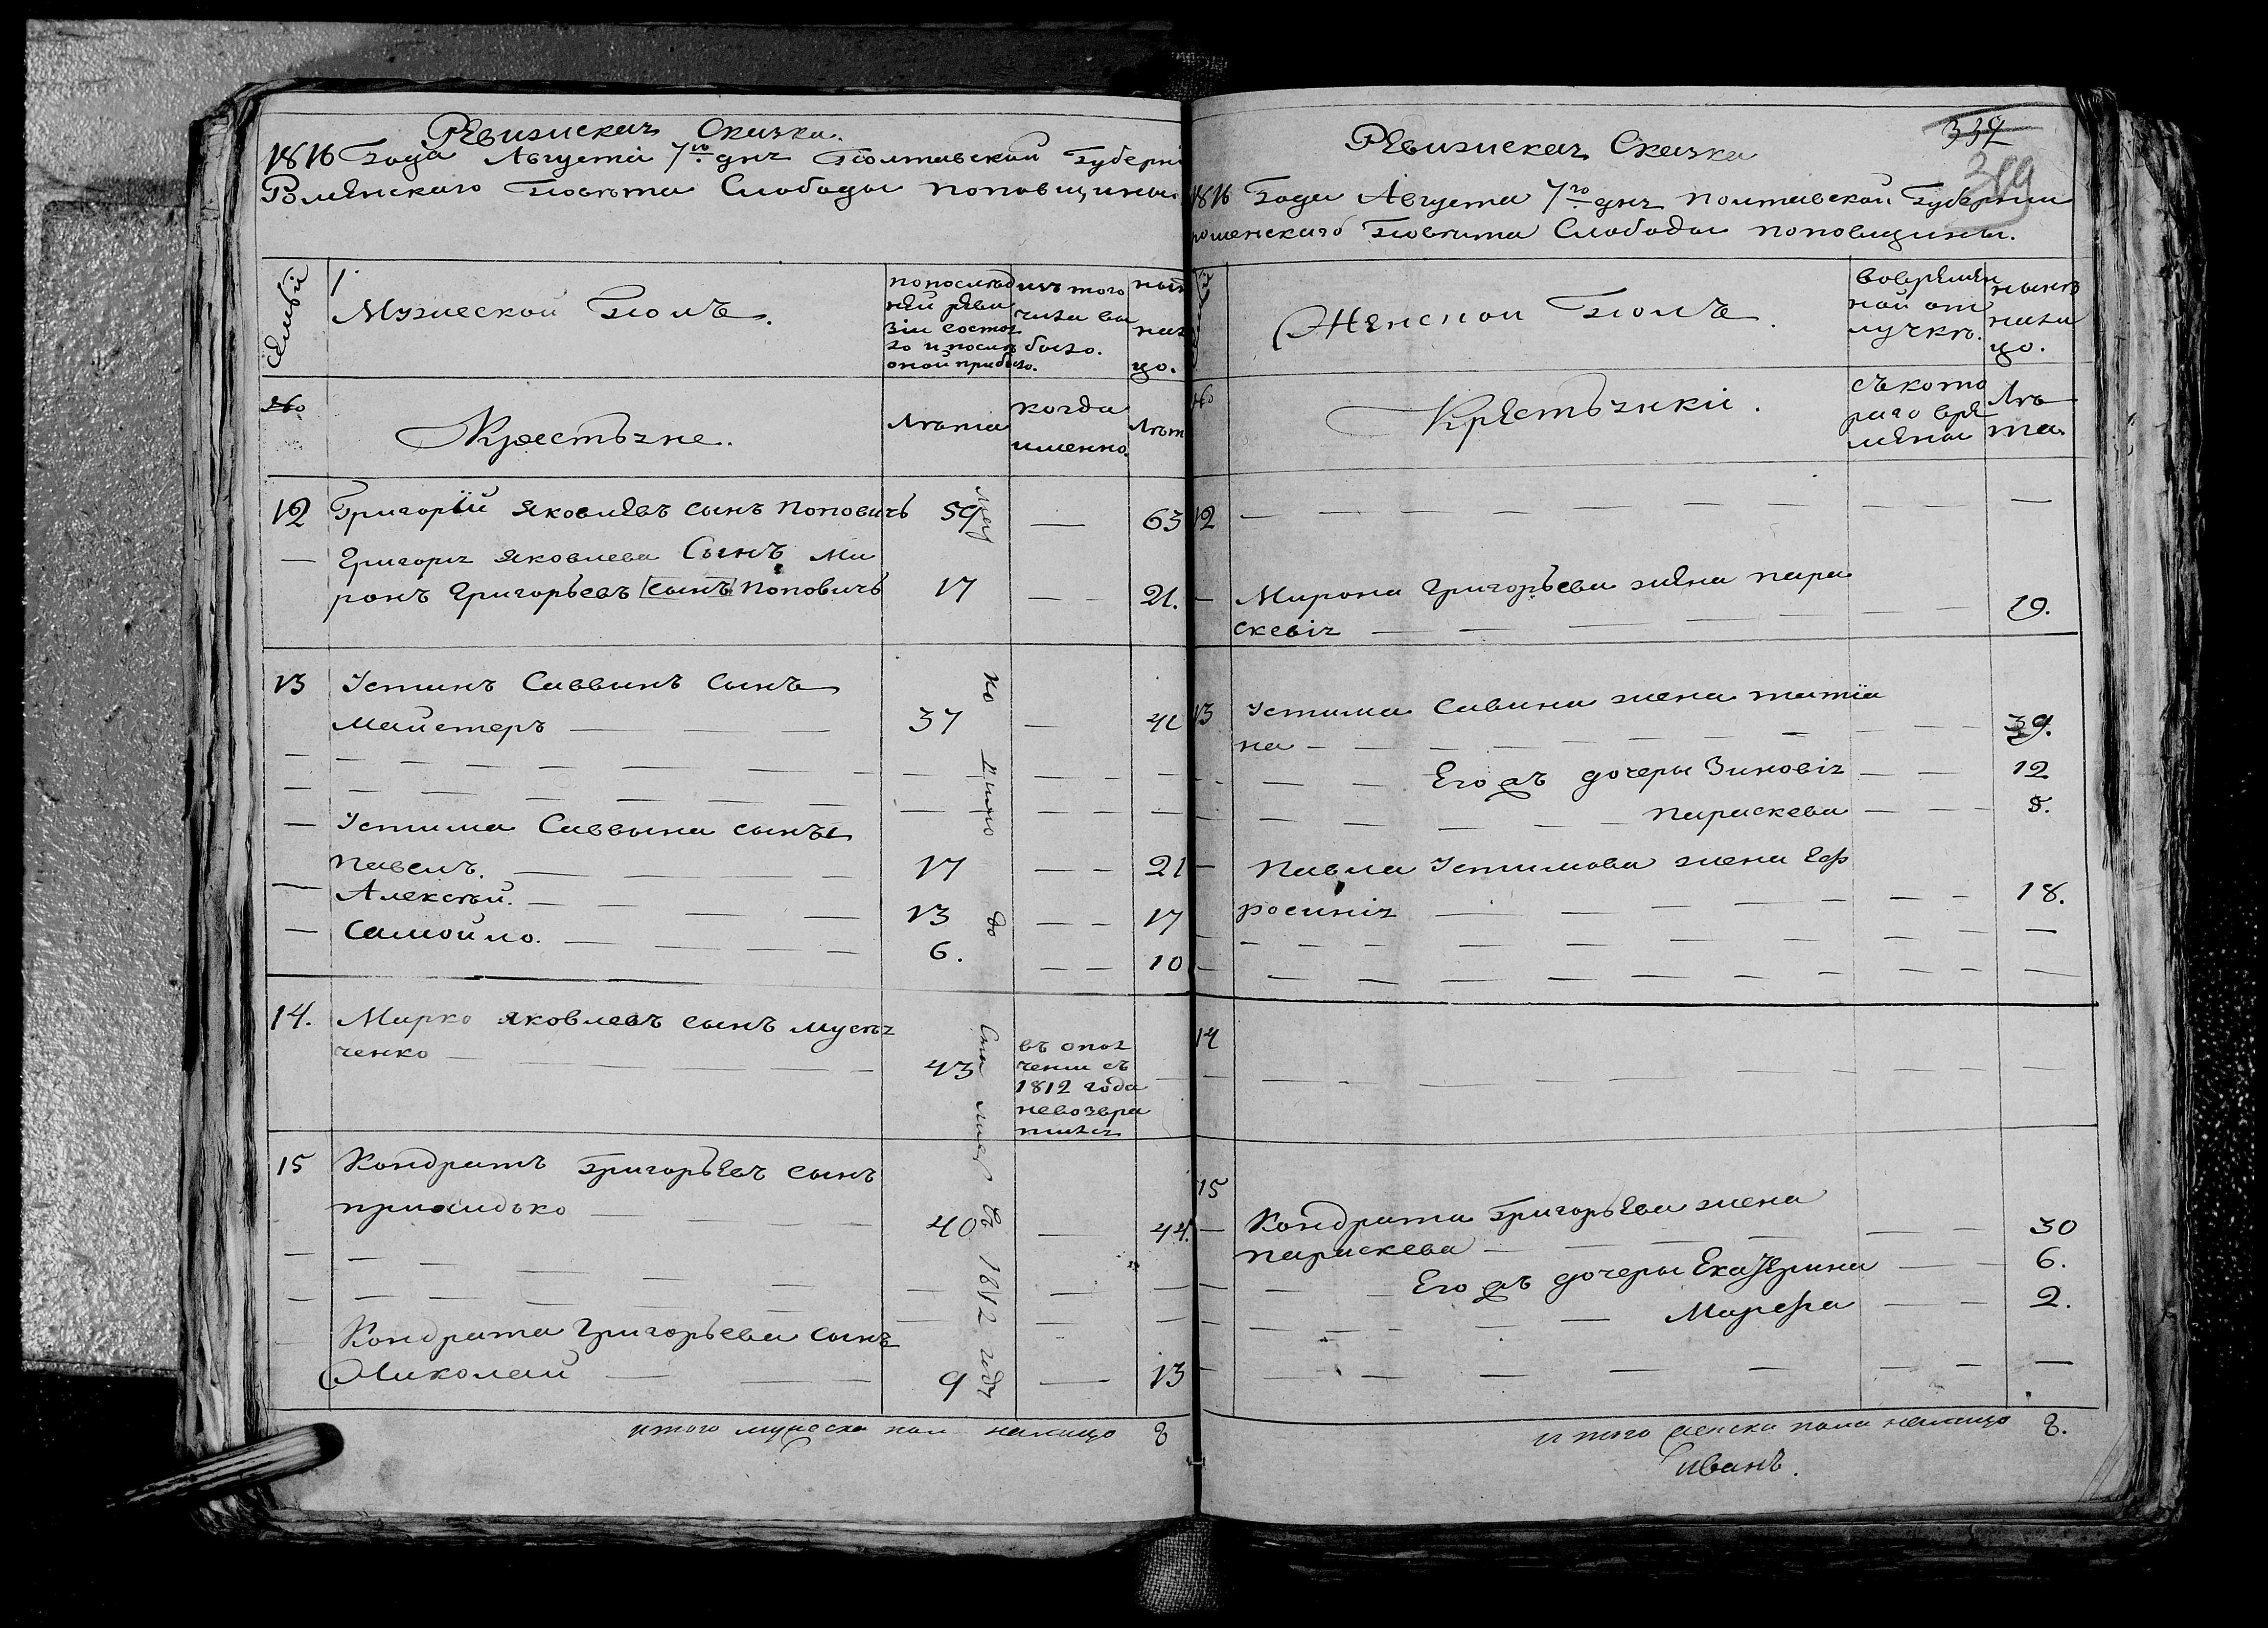 Ревизская Сказка.
1816 Года Августа 7го дня Полтавской Губерніи
Роменскаго Повѣта Слободы Поповщины
Семьи
Мужеской Полъ.
по послѣдней ревизіи состояло и послѣ оной прибыло.
изъ того числа выбыло.
ныне на лицо.
№
Крестьяне.
Лѣта
когда именно.
Лѣта
12 Григорій Яковлевъ сынъ Поповичъ 59 — 63
— Григорія Яковлева Сынъ Ми
ронъ Григорьевъ сынъ Поповичъ 17 — 21.
13 Устимъ Саввинъ сынъ
Майстеръ — 37 — 41
— Устима Саввина сыны
Павелъ. — 17 — 21
— Алексѣй. — 13 — 17
— Самойло. — 6. — 10
14. Марко Яковлевъ сынъ Мусѣя
ченко — 43
въ опол
ченіи съ
1812 года
невозвра
тился
15 Кондратъ Григорьевъ сынъ
Приходько — 40 — 44.
Кондрата Григорьева сынъ
Николай — 9 — 13
1812 года
итого мужеска пол налицо 8
339
319
Ревизская Сказка
1816 Года Августа 7го дня Полтавской Губерніи
роменскаго Повѣта Слободы Поповщины.
Женской Полъ.
вовремян
ной от
лучкѣ.
нынѣ
нали
цо.
№
Крестьянки.
съ кото
раго вре
мены
Лѣ
та.
12 —
— Мирона Григорьева жена Пара
скевія — 19.
13 Устима Савина жена Татіа
на — 39.
Его жъ дочеры Зиновія — 12
Параскева — 8.
— Павла Устимова жена Еф
росинія — 18.
14
15
— Кондрата Григорьева жена
Параскева — 30
Его жъ дочеры Екатерина — 6.
Марфа — 2.
итого женска пола налицо 8.
Иванъ.